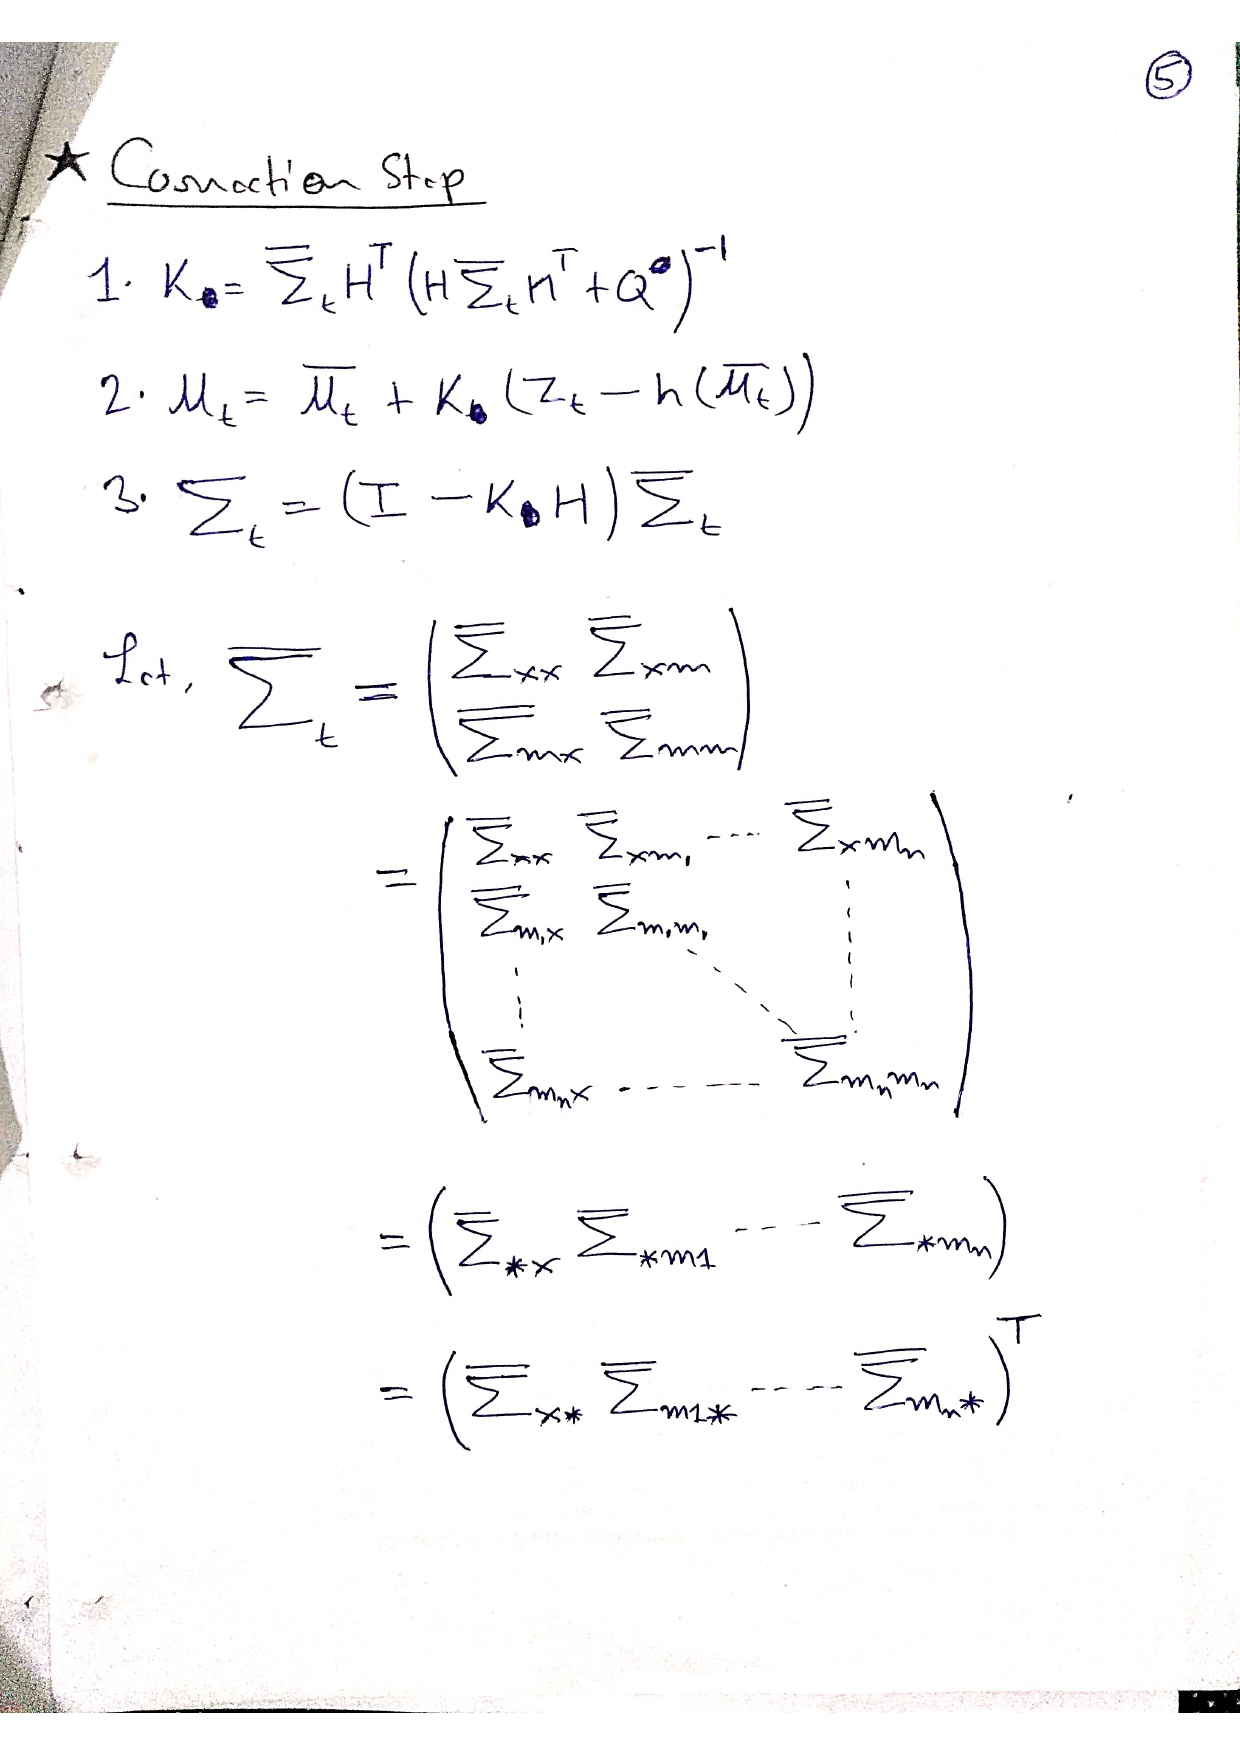 ⑤
★ Correction Step
1. K = Σ̅_t H^T (H Σ̅_t H^T + Q)^-1
2. μ_t = μ̅_t + K (z_t − h(μ̅_t))
3. Σ_t = (I − K H) Σ̅_t
Let, Σ̅_t = ( Σ̅_xx Σ̅_xm
Σ̅_mx Σ̅_mm )
= ( Σ̅_xx Σ̅_xm₁ ---- Σ̅_xmₙ
Σ̅_m₁x Σ̅_m₁m₁
Σ̅_mₙx ------ Σ̅_mₙmₙ )
= ( Σ̅_*x Σ̅_*m1 ---- Σ̅_*mₙ )
= ( Σ̅_x* Σ̅_m1* ----- Σ̅_mₙ* )^T